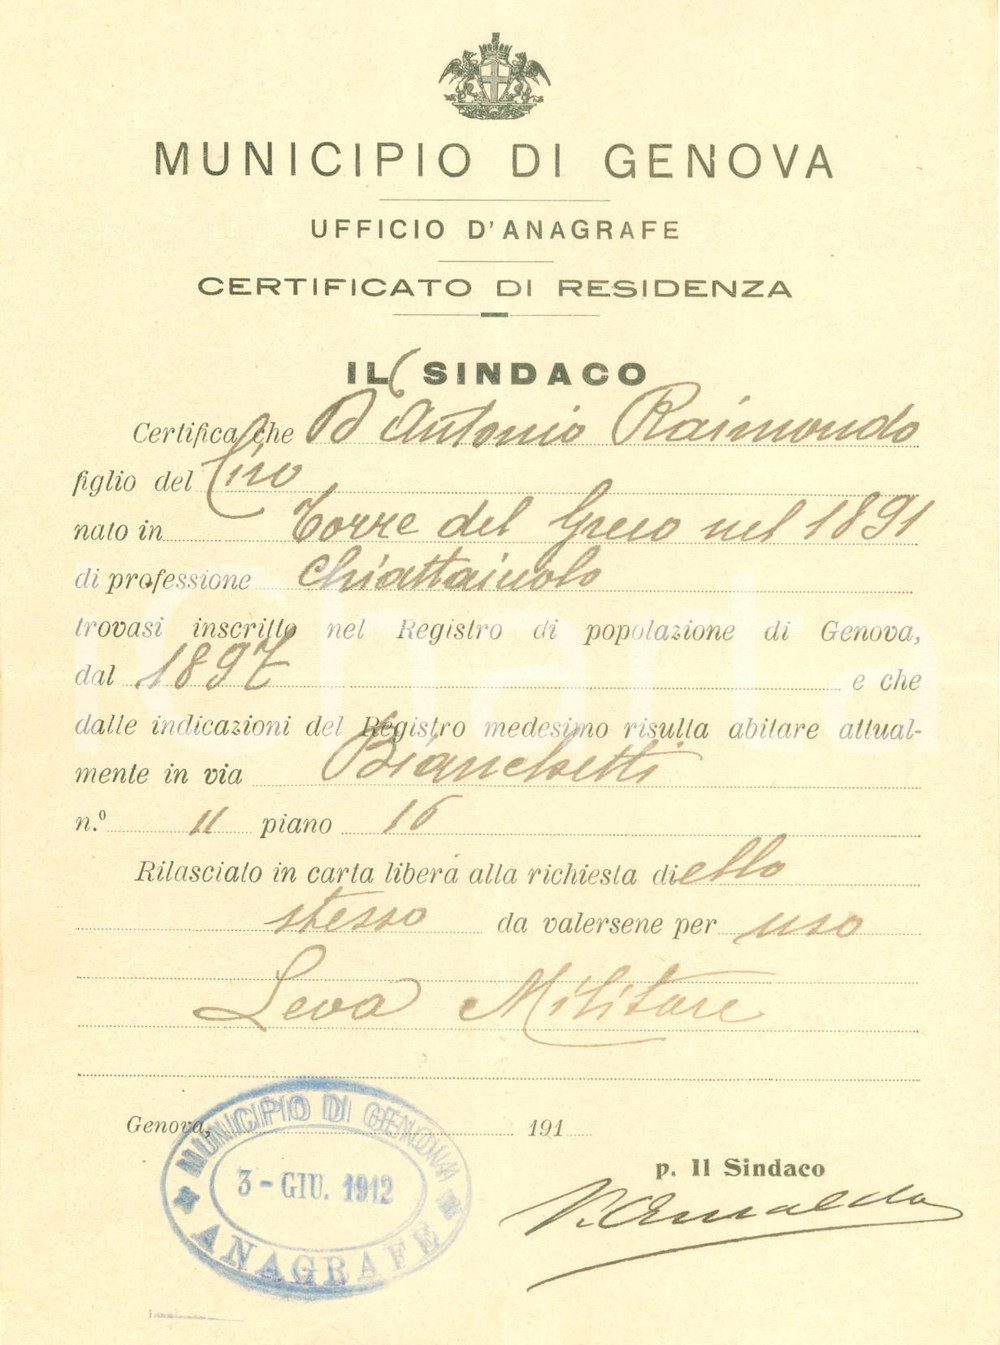 MUNICIPIO DI GENOVA
UFFICIO D'ANAGRAFE
CERTIFICATO DI RESIDENZA
IL SINDACO
Certifica che D'Antonio Raimondo
figlio del Ciro
nato in Torre del Greco nel 1891
di professione Chiattaiuolo
trovasi inscritto nel Registro di popolazione di Genova,
dal 1897 e che
dalle indicazioni del Registro medesimo risulta abitare attual-
mente in via Bianchetti
n.º 11 piano 16
Rilasciato in carta libera alla richiesta di ello
stesso da valersene per uso
Leva Militare
Genova, 191
MUNICIPIO DI GENOVA
3 - GIU. 1912
ANAGRAFE
p. Il Sindaco